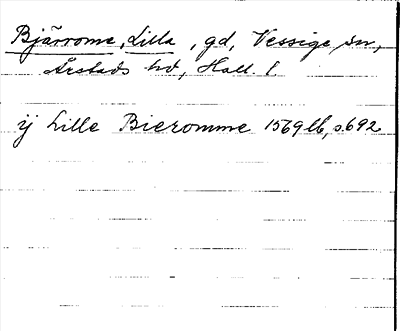 Bjärrome, Lilla, gd, Vessige sn,
Årstads hd, Hall. l
ij Lille Bieromme 1569 lb, s. 692